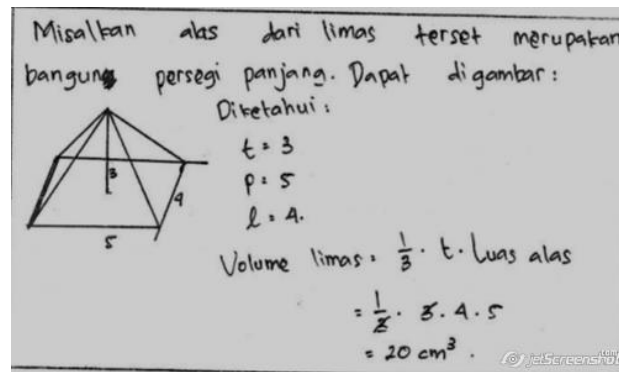 Misalkan alas dari limas terset merupakan
bangung persegi panjang. Dapat digambar :
Diketahui :
t = 3
p = 5
l = 4.
3
4
5
Volume limas = 1/3 . t . Luas alas
= 1/3 . 3 . 4 . 5
= 20 cm³ .
jetScreenshot